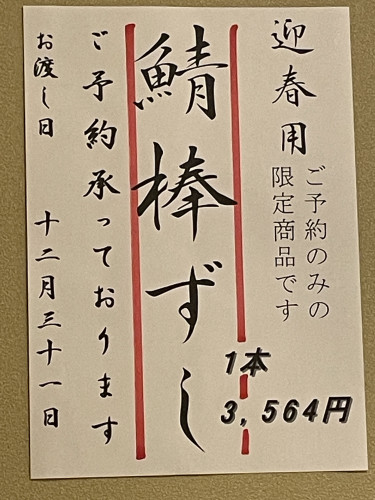 迎春用
ご予約のみの
限定商品です
鯖棒ずし
1本
3,564円
ご予約承っております
お渡し日 十二月三十一日